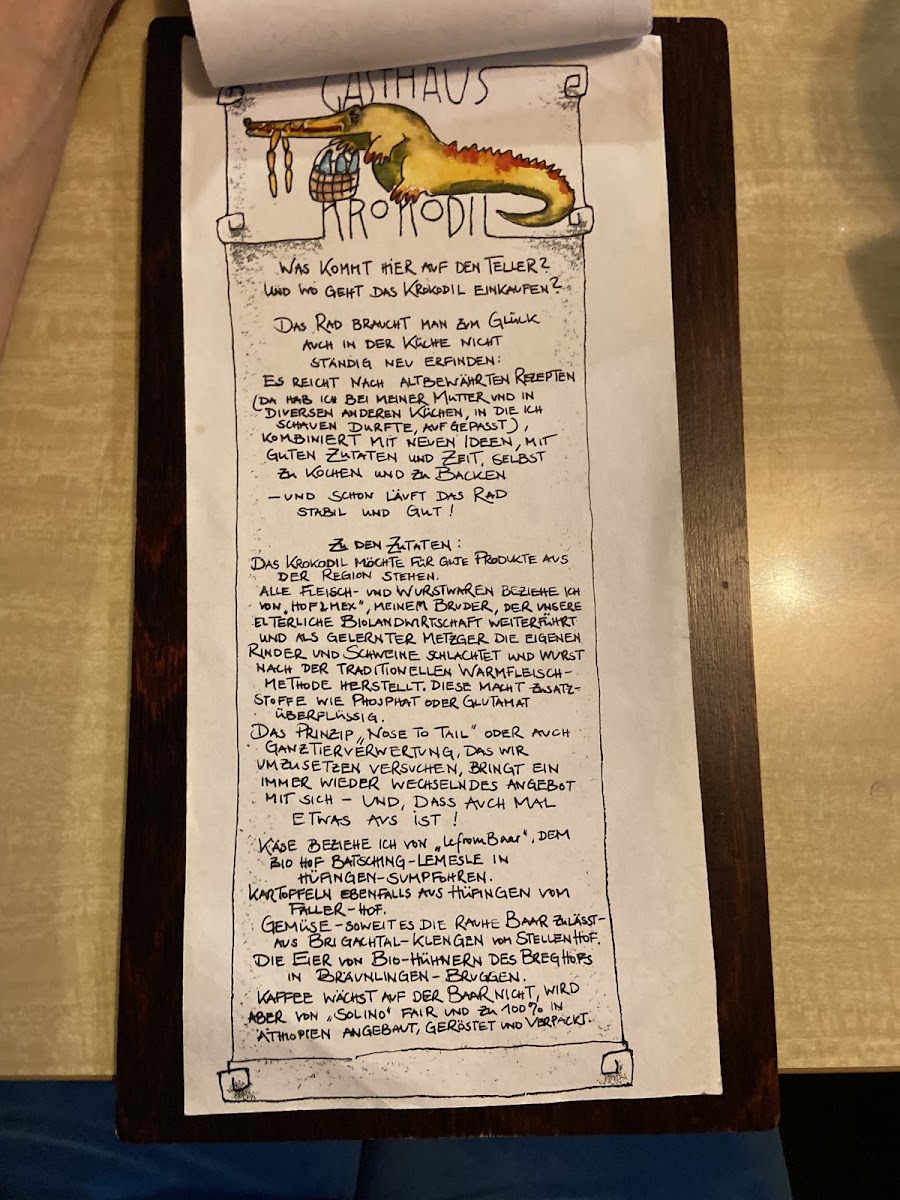 GASTHAUS
KROKODIL
WAS KOMMT HIER AUF DEN TELLER?
UND WO GEHT DAS KROKODIL EINKAUFEN?
DAS RAD BRAUCHT MAN ZUM GLÜCK
AUCH IN DER KÜCHE NICHT
STÄNDIG NEU ERFINDEN:
ES REICHT NACH ALTBEWÄHRTEN REZEPTEN
(DA HAB ICH BEI MEINER MUTTER UND IN
DIVERSEN ANDEREN KÜCHEN, IN DIE ICH
SCHAUEN DURFTE, AUFGEPASST),
KOMBINIERT MIT NEUEN IDEEN, MIT
GUTEN ZUTATEN UND ZEIT, SELBST
ZU KOCHEN UND ZU BACKEN
– UND SCHON LÄUFT DAS RAD
STABIL UND GUT!
ZU DEN ZUTATEN:
DAS KROKODIL MÖCHTE FÜR GUTE PRODUKTE AUS
DER REGION STEHEN.
ALLE FLEISCH- UND WURSTWAREN BEZIEHE ICH
VON „HOF & MEX", MEINEM BRUDER, DER UNSERE
ELTERLICHE BIOLANDWIRTSCHAFT WEITERFÜHRT
UND ALS GELERNTER METZGER DIE EIGENEN
RINDER UND SCHWEINE SCHLACHTET UND WURST
NACH DER TRADITIONELLEN WARMFLEISCH-
METHODE HERSTELLT. DIESE MACHT ZUSATZ-
STOFFE WIE PHOSPHAT ODER GLUTAMAT
ÜBERFLÜSSIG.
DAS PRINZIP „NOSE TO TAIL" ODER AUCH
GANZTIERVERWERTUNG, DAS WIR
UMZUSETZEN VERSUCHEN, BRINGT EIN
IMMER WIEDER WECHSELNDES ANGEBOT
MIT SICH – UND, DASS AUCH MAL
ETWAS AUS IST!
KÄSE BEZIEHE ICH VON „lefromBaar", DEM
BIO HOF BATSCHING-LEMESLE IN
HÜFINGEN-SUMPFOHREN.
KARTOFFELN EBENFALLS AUS HÜFINGEN VOM
FALLER-HOF.
GEMÜSE - SOWEIT ES DIE RAUHE BAAR ZULÄSST -
AUS BRIGACHTAL-KLENGEN VOM STELLENHOF.
DIE EIER VON BIO-HÜHNERN DES BREGHOFS
IN BRÄUNLINGEN-BRUGGEN.
KAFFEE WÄCHST AUF DER BAAR NICHT, WIRD
ABER VON „SOLINO" FAIR UND ZU 100% IN
ÄTHIOPIEN ANGEBAUT, GERÖSTET UND VERPACKT.